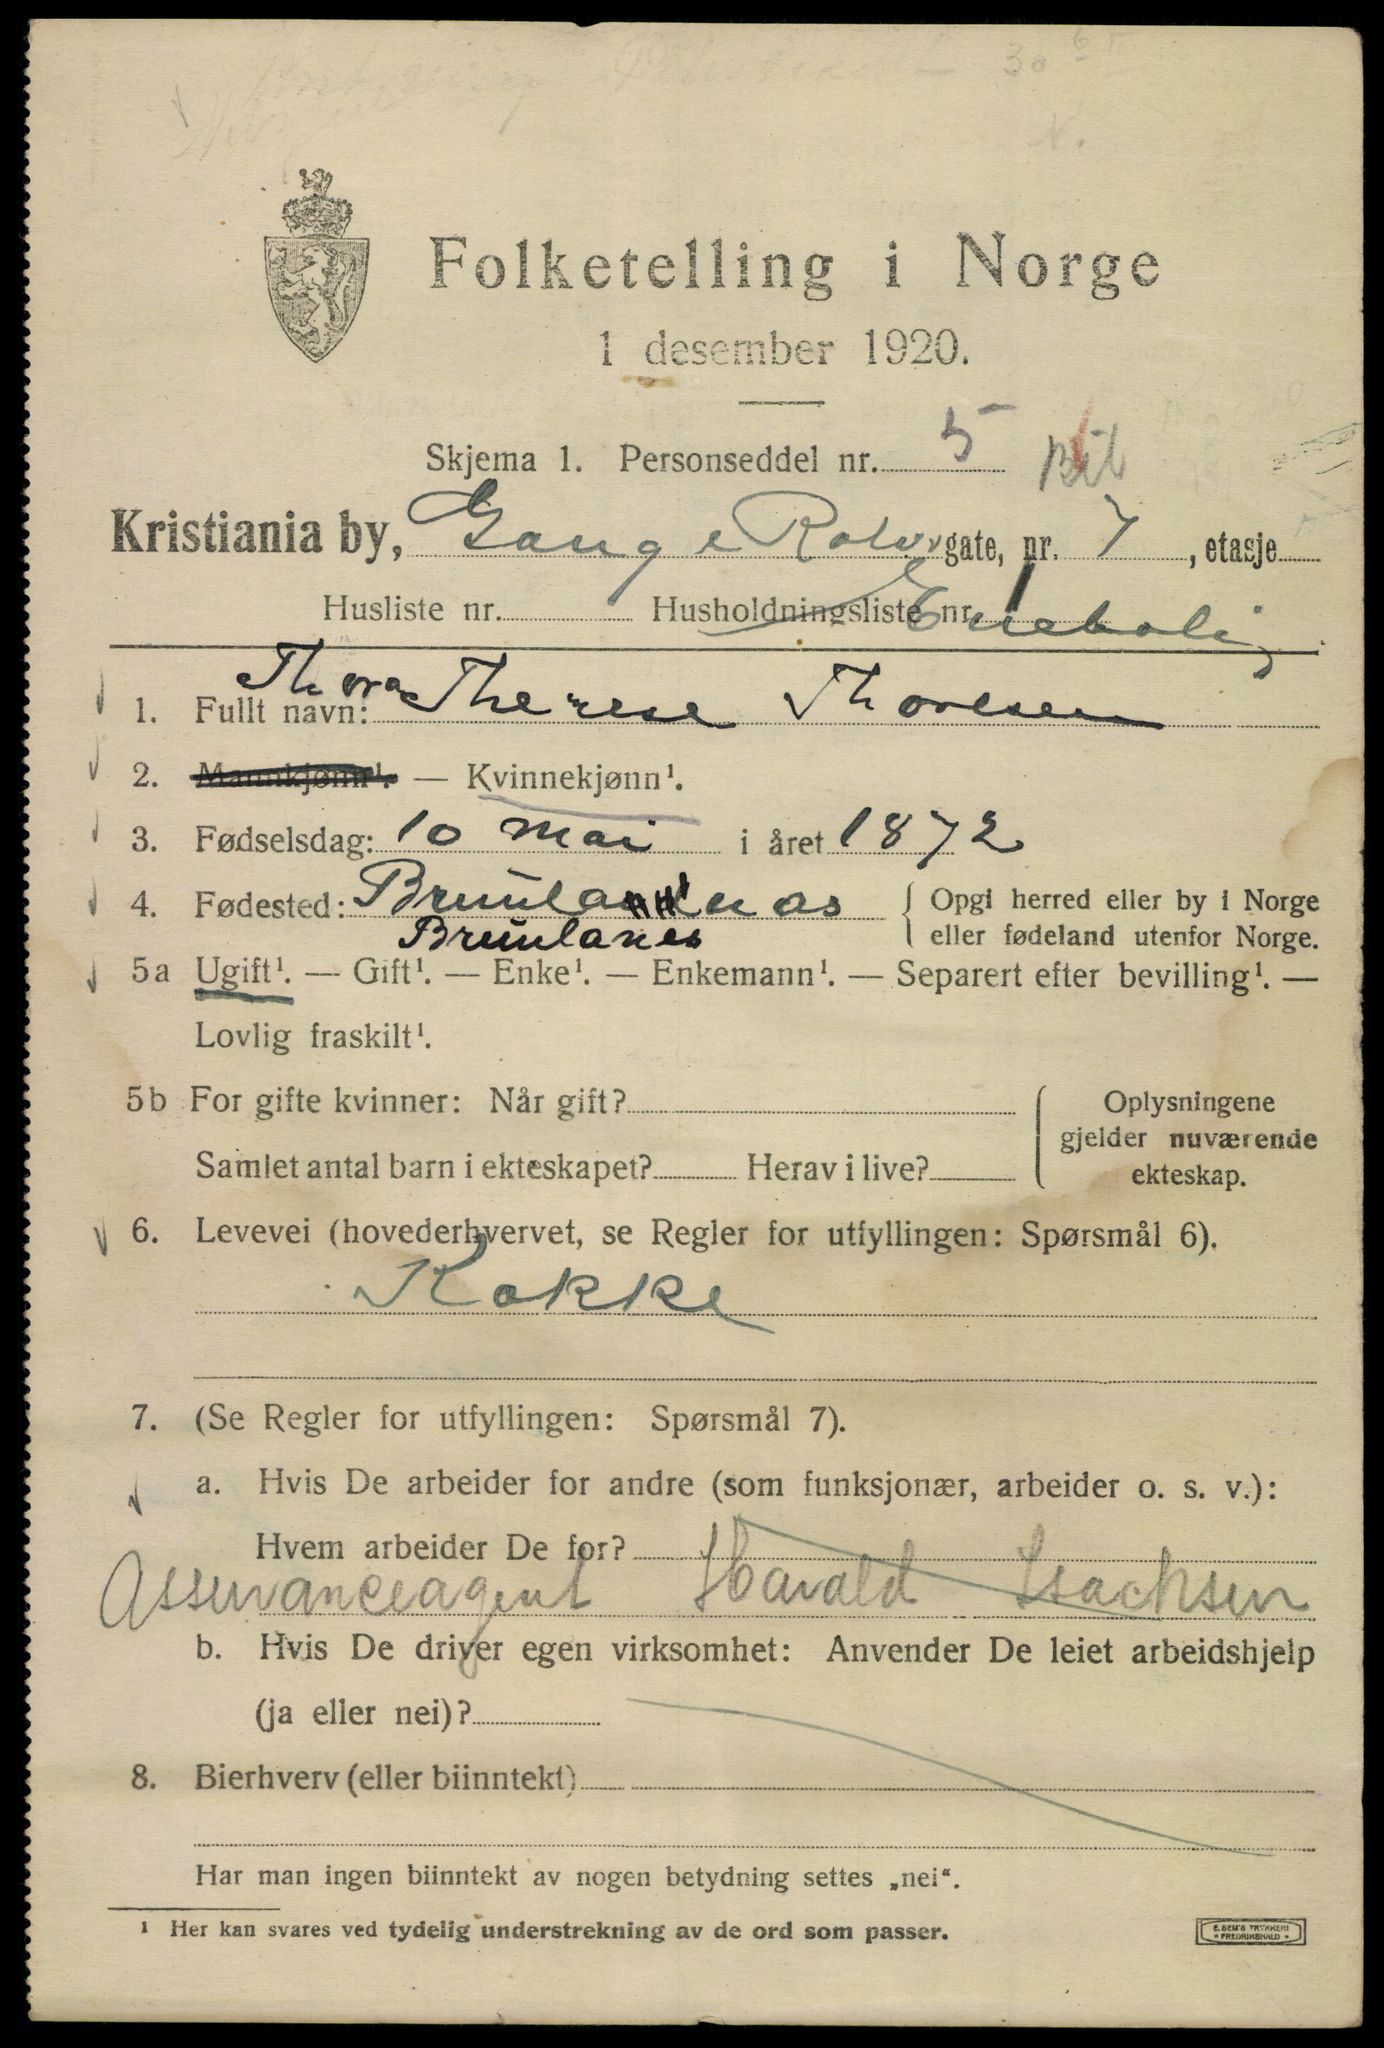 30 6
N.
Folketelling i Norge
1 desember 1920.
Skjema 1. Personseddel nr. 5
Kristiania by, Gange Rolvsgate, nr. 7, etasje
Husliste nr. Husholdningsliste nr. 1 Enebolig
Thora
1. Fullt navn: Therese Thoresen
2. Mannkjønn¹. — Kvinnekjønn¹.
3. Fødselsdag: 10 mai i året 1872
4. Fødested: Brunla nas { Opgi herred eller by i Norge
Brunlanes eller fødeland utenfor Norge.
5a Ugift¹. — Gift¹. — Enke¹. — Enkemann¹. — Separert efter bevilling¹. —
Lovlig fraskilt¹.
5b For gifte kvinner: Når gift? { Oplysningene
gjelder nuværende
Samlet antal barn i ekteskapet? Herav i live? ekteskap.
6. Levevei (hovederhvervet, se Regler for utfyllingen: Spørsmål 6).
Kokke
7. (Se Regler for utfyllingen: Spørsmål 7).
a. Hvis De arbeider for andre (som funksjonær, arbeider o. s. v.):
Hvem arbeider De for?
Assuranceagent Harald Isachsen
b. Hvis De driver egen virksomhet: Anvender De leiet arbeidshjelp
(ja eller nei)?
8. Bierhverv (eller biinntekt)
Har man ingen biinntekt av nogen betydning settes „nei“.
¹ Her kan svares ved tydelig understrekning av de ord som passer.
E. SEM'S TRYKKERI
• FREDRIKSHALD •